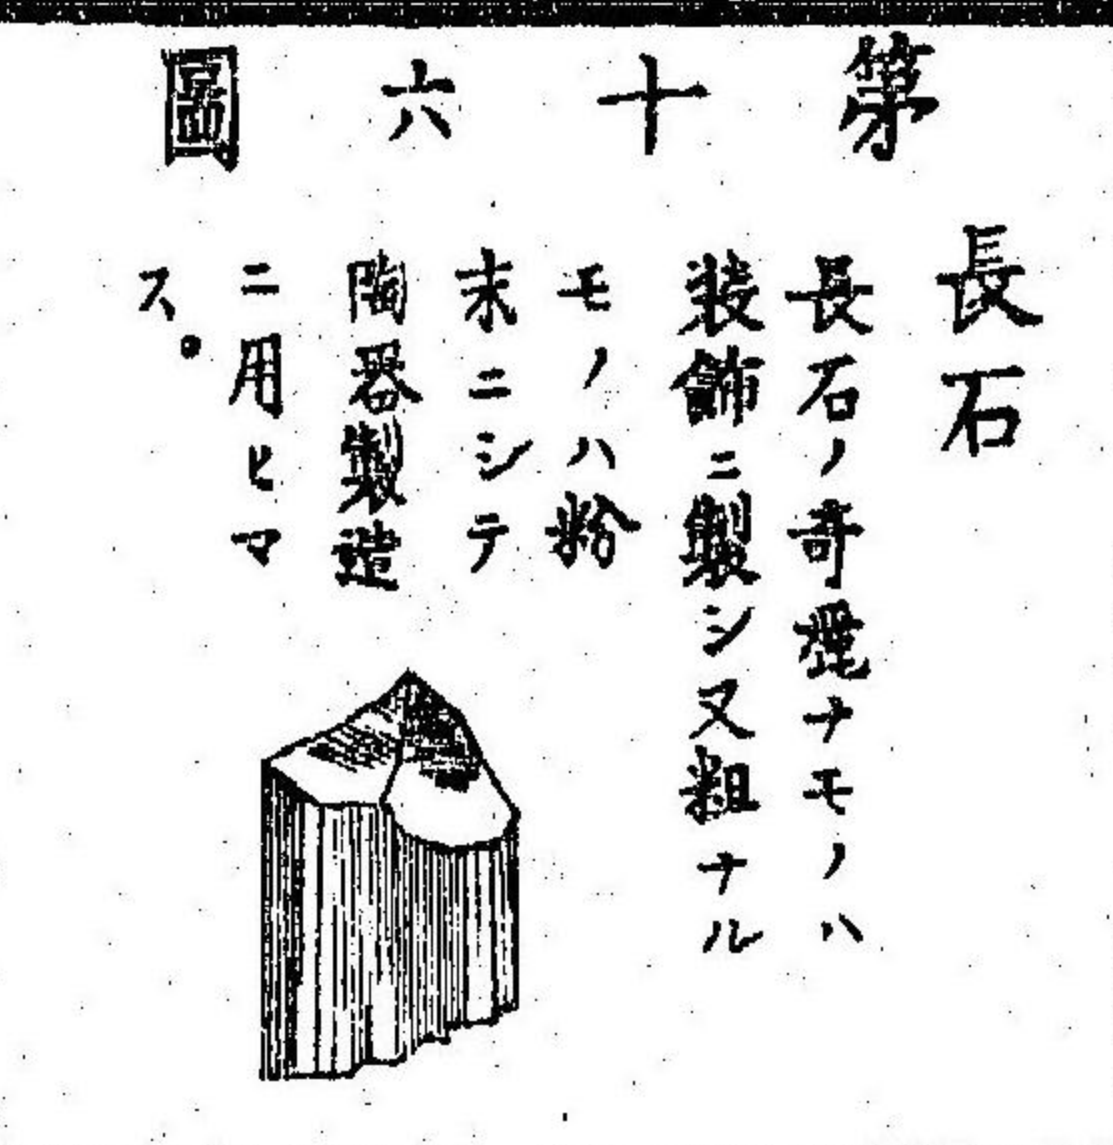 第十六圖
長石
長石ノ奇麗ナモノハ
装飾ニ製シ又粗ナル
モノハ粉
末ニシテ
陶器製造
ニ用ヒマ
ス。